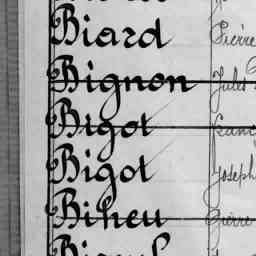 Biard Pierre
Bignon Jules
Bigot
Bigot Joseph
Biheu Pierre